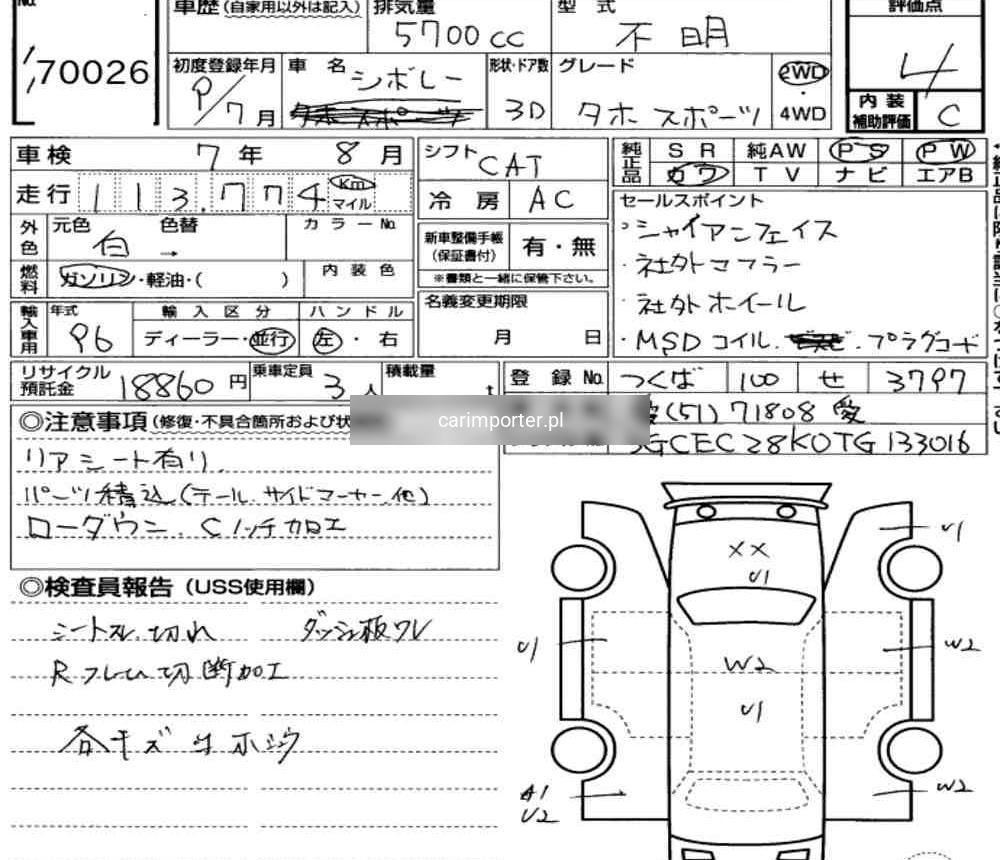 No.
170026
車歴 (自家用以外は記入) 排気量 5700cc 型式 不明 評価点 4
初度登録年月 年7月 車名 シボレー 形状・ドア数 3D グレード タホ スポーツ 2WD・4WD 内装補助評価 C
車検 7年 8月 シフト CAT 純正品 SR 純AW PS PW
カワ TV ナビ エアB
走行 113.774 Km マイル 冷房 AC セールスポイント
外色 元色 白 色替 → カラーNo. 新車整備手帳 (保証書付) 有・無
・シャイアンフェイス
燃料 ガソリン・軽油・( ) 内装色 ※書類と一緒に保管下さい。
・社外マフラー
名義変更期限 月 日
・社外ホイール
輸入車用 年式 96 輸入区分 ディーラー・並行 ハンドル 左・右
・MSD コイル. プラグコード
リサイクル預託金 18860円 乗車定員 3人 積載量 t 登録No. つくば 100 せ 3797
carimporter.pl
(51) 71808 愛
GCEC28K0TG133016
◎注意事項 (修復・不具合箇所および状
リアシート有り.
パーツ積込 (テール. サイドマーカー. 他)
ローダウン. Cノッチ加工
◎検査員報告 (USS使用欄)
シートスレ. 切れ ダッシュ板ワレ
Rフレーム切断加工
各キズ サホシク
XX
U1
U1
U1
W2
W2
U1
A1
U2
W2